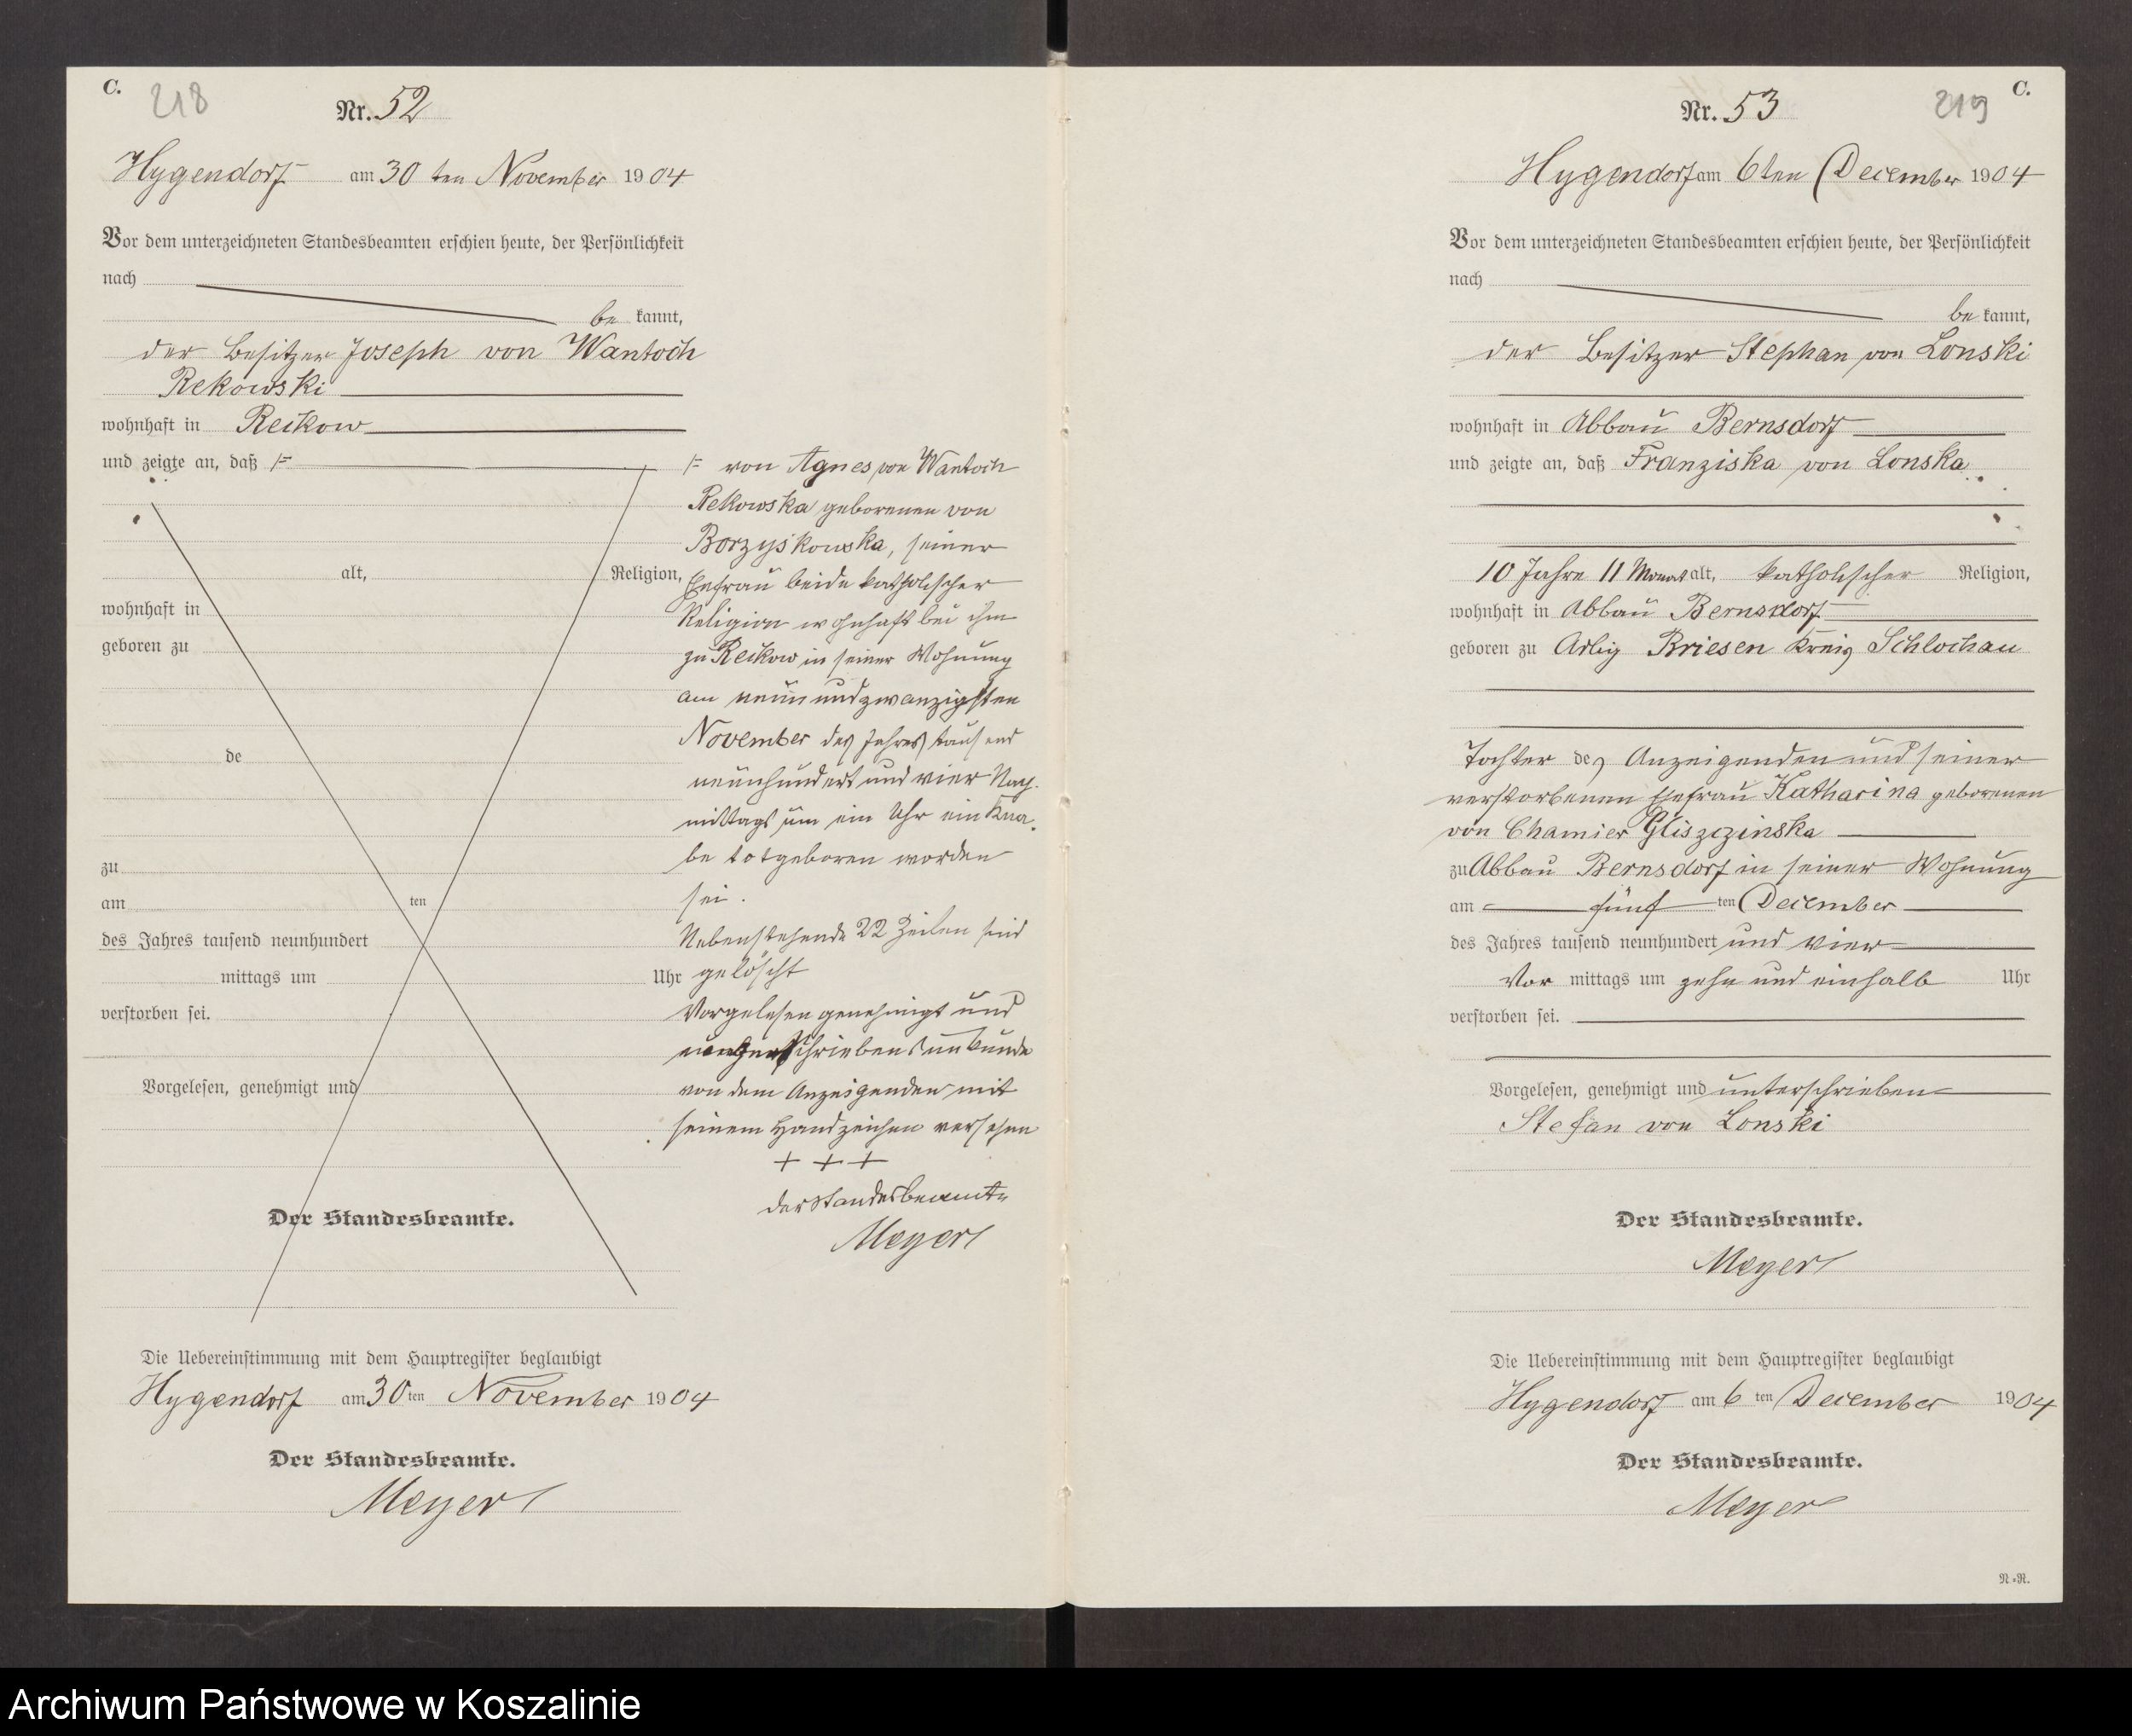 C.
218
Nr. 52
Hygendorf am 30 ten November 1904
Vor dem unterzeichneten Standesbeamten erschien heute, der Persönlichkeit
nach
be kannt,
der Besitzer Joseph von Wantoch
Rekowski
wohnhaft in Reckow
und zeigte an, daß
alt, Religion,
wohnhaft in
geboren zu
de
zu
am ten
des Jahres tausend neunhundert
mittags um Uhr
verstorben sei.
Vorgelesen, genehmigt und
Der Standesbeamte.
von Agnes von Wantoch
Rekowska geborenen von
Borzyskowska, seiner
Ehefrau beide katholischer
Religion wohnhaft bei ihm
zu Reckow in seiner Wohnung
am neun und zwanzigsten
November des Jahres tausend
neunhundert und vier Nach-
mittags um ein Uhr ein Kna-
be totgeboren worden
sei.
Nebenstehende 22 Zeilen sind
gelöscht
Vorgelesen genehmigt und
von dem Anzeigenden mit
seinem Handzeichen versehen
+ + +
der Standesbeamte
Meyer
Die Uebereinstimmung mit dem Hauptregister beglaubigt
Hygendorf am 30 ten November 1904
Der Standesbeamte.
Meyer
C.
219
Nr. 53
Hygendorf am 6ten December 1904
Vor dem unterzeichneten Standesbeamten erschien heute, der Persönlichkeit
nach
be kannt,
der Besitzer Stephan von Lonski
wohnhaft in Abbau Bernsdorf
und zeigte an, daß Franziska von Lonska
10 Jahre 11 Monat alt, katholischer Religion,
wohnhaft in Abbau Bernsdorf
geboren zu Adlig Briesen Kreis Schlochau
Tochter des Anzeigenden und seiner
verstorbenen Ehefrau Katharina geborenen
von Chamier Gliszczinska
zu Abbau Bernsdorf in seiner Wohnung
am fünf ten December
des Jahres tausend neunhundert und vier
Vor mittags um zehn und einhalb Uhr
verstorben sei.
Vorgelesen, genehmigt und unterschrieben
Stefan von Lonski
Der Standesbeamte.
Meyer
Die Uebereinstimmung mit dem Hauptregister beglaubigt
Hygendorf am 6 ten December 1904
Der Standesbeamte.
Meyer
R.=R.
Archiwum Państwowe w Koszalinie